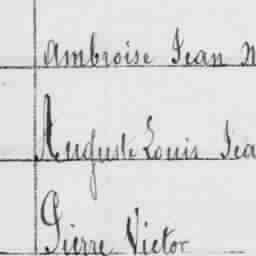 Ambroise Jean
Auguste Louis Jea
Pierre Victor